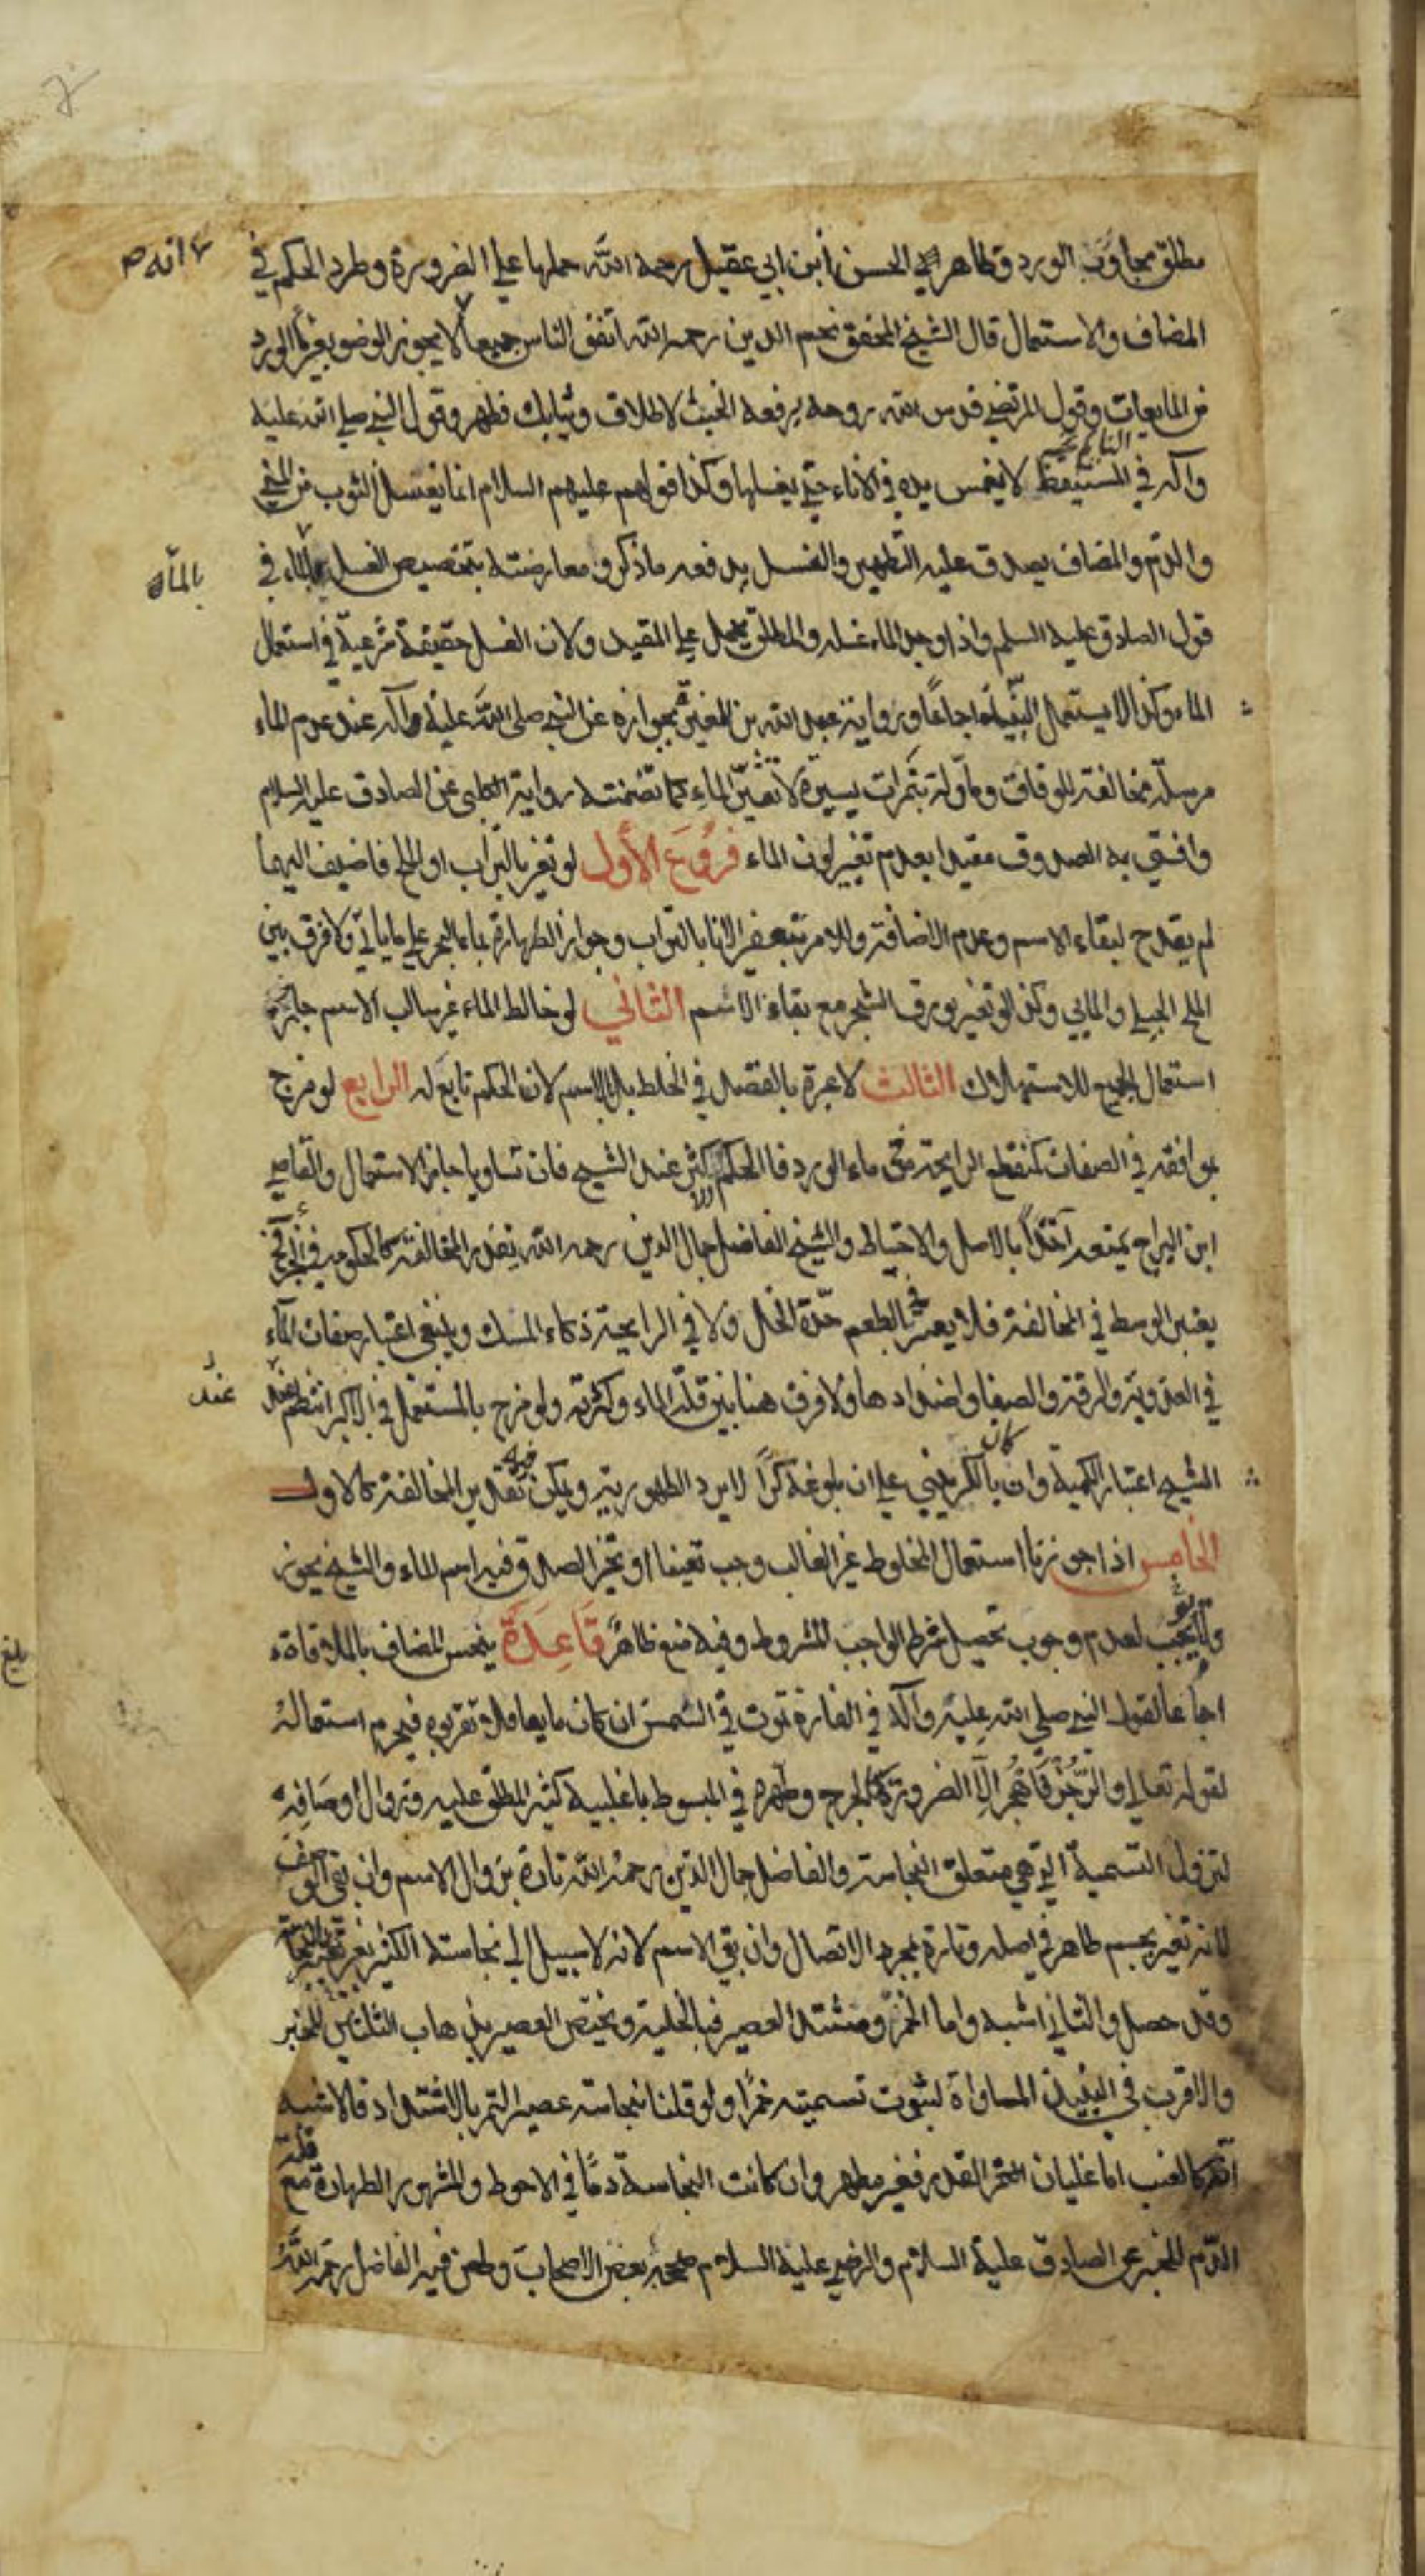 مطلق مجاور الورد وظاهر الحسن ابن ابي عقيل رحمه الله حملها على الضرورة وطرد الحكم في
انه صح
المضاف والاستعمال قال الشيخ المحقق نجم الدين رحمه الله اتفق الناس جميعا لا يجوز الوضو بغير ماء الورد
من المايعات وقول المرتضى قدس الله روحه يرفعه الخبث لاطلاق وثيابك فطهر وقول النبي صلى الله عليه
النائم
واله في المستيقظ لا يغمس يده في الاناء حتى يغسلها وكذا قولهم عليهم السلام انما يغسل الثوب من المني
والدم والمضاف يصدق عليه التطهير والغسل يدفعه ما ذكر ومعارضته بتخصيص الغسل بالماء في
بالماء
قول الصادق عليه السلم واذا وجد الماء غسله والمطلق يحمل على المقيد ولان الغسل حقيقة شرعية في استعمال
الماء وكذا لا يستعمل النبيذ اجماعا ورواية عبد الله بن المغيرة بجوازه عن النبي صلى الله عليه واله عند عدم الماء
مرسلة مخالفة للوفاق وماولة بتمرات يسيرة لا تغير الماء كما تضمنته رواية الكلبي عن الصادق عليه السلام
وافتى به الصدوق مقيدا بعدم تغيير لون الماء فروع الأول لو تغير بالتراب او الملح فاضيف اليهما
لم يقدح لبقاء الاسم وعدم الاضافة وللامر بتعفير الانا بالتراب وجواز الطهارة بماء البحر على ما ياتي ولا فرق بين
الملح الجبلي والمايي وكذا لو تغير بورق الشجر مع بقاء الاسم الثاني لو خالط الماء غير سالب الاسم جاز
استعمال الجميع للاستهلاك الثالث لا عبرة بالفصل في الخلط بل بالاسم لان الحكم تابع له الرابع لو مزج
بموافقه في الصفات كمنقطع الرايحة من ماء الورد فالحكم للاكثر عند الشيخ فان تساويا جاز الاستعمال والقاضي
ابن البراج يمنعه آخذا بالاصل والاحتياط والشيخ الفاضل جمال الدين رحمه الله يقدر المخالفة كالحكومة في الحر
يعتبر الوسط في المخالفة فلا يعتبر في الطعم حدة الخل ولا في الرايحة ذكاء المسك وينبغي اعتبار صفات الماء
في العذوبة والرقة والصفا واضدادها ولا فرق هنا بين قلة الماء وكثرته ولو مزج بالمستعمل في الاكبر انتظم عند
عند
كان
الشيخ اعتبار الكمية وان بالكر يبني على ان بلوغه كرا لا يرد الطهورية ويمكن فيه تقدير المخالفة كالاول
الخامس اذا جوزنا استعمال المخلوط غير الغالب وجب تعينا او تخير الصدق فيه اسم الماء والشيخ يجوز
ولا يجب لعدم وجوب تحصيل شرط الواجب المشروط وفيه منع ظاهر قاعدة ينجس المضاف بالملاقاة
اجماعا لقول النبي صلى الله عليه واله في الفارة تموت في السمن ان كان مايعا فلا تقربوه فيحرم استعماله
لقوله تعالى والرجز فاهجر الا لضرورة كالجرح وطهره في المبسوط باغلبية كثير المطلق عليه وزوال اوصافه
لتزول التسمية التي هي متعلق النجاسة والفاضل جمال الدين رحمه الله تارة بزوال الاسم وان بقي الوصف
لانه تغير بجسم طاهر في اصله وتارة بمجرد الاتصال وان بقي الاسم لانه لا سبيل الى نجاسة الكثير بغير تغيير بالنجاسة
وقد حصل والثاني اشبه واما الخمر ومشتد العصير فبالخلية ويختص العصير بذهاب الثلثين للخبر
والاقرب في النبيذ المساواة لثبوت تسميته خمرا ولو قلنا بنجاسة عصير التمر بالاشتداد فالاشبه
انه كالعنب اما غليان القدر فغير مطهر وان كانت النجاسة دما في الاحوط والمشهور الطهارة مع قلة
الدم للخبر عن الصادق عليه السلام والرضي عليه السلام صححه بعض الاصحاب وطعن فيه الفاضل رحمه الله
بلغ